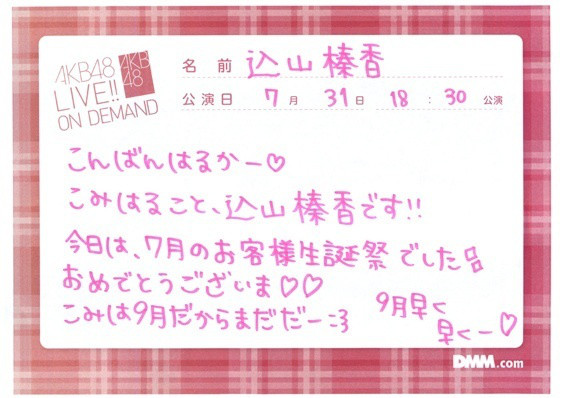 AKB48
LIVE!!
ON DEMAND
AKB
48
名前 込山榛香
公演日 7月31日 18:30公演
こんばんはるかー♡
こみはること、込山榛香です!!
今日は、7月のお客様生誕祭でした
おめでとうございま♡♡
こみは9月だからまだだー:3
9月早く
早くー♡
DMM.com